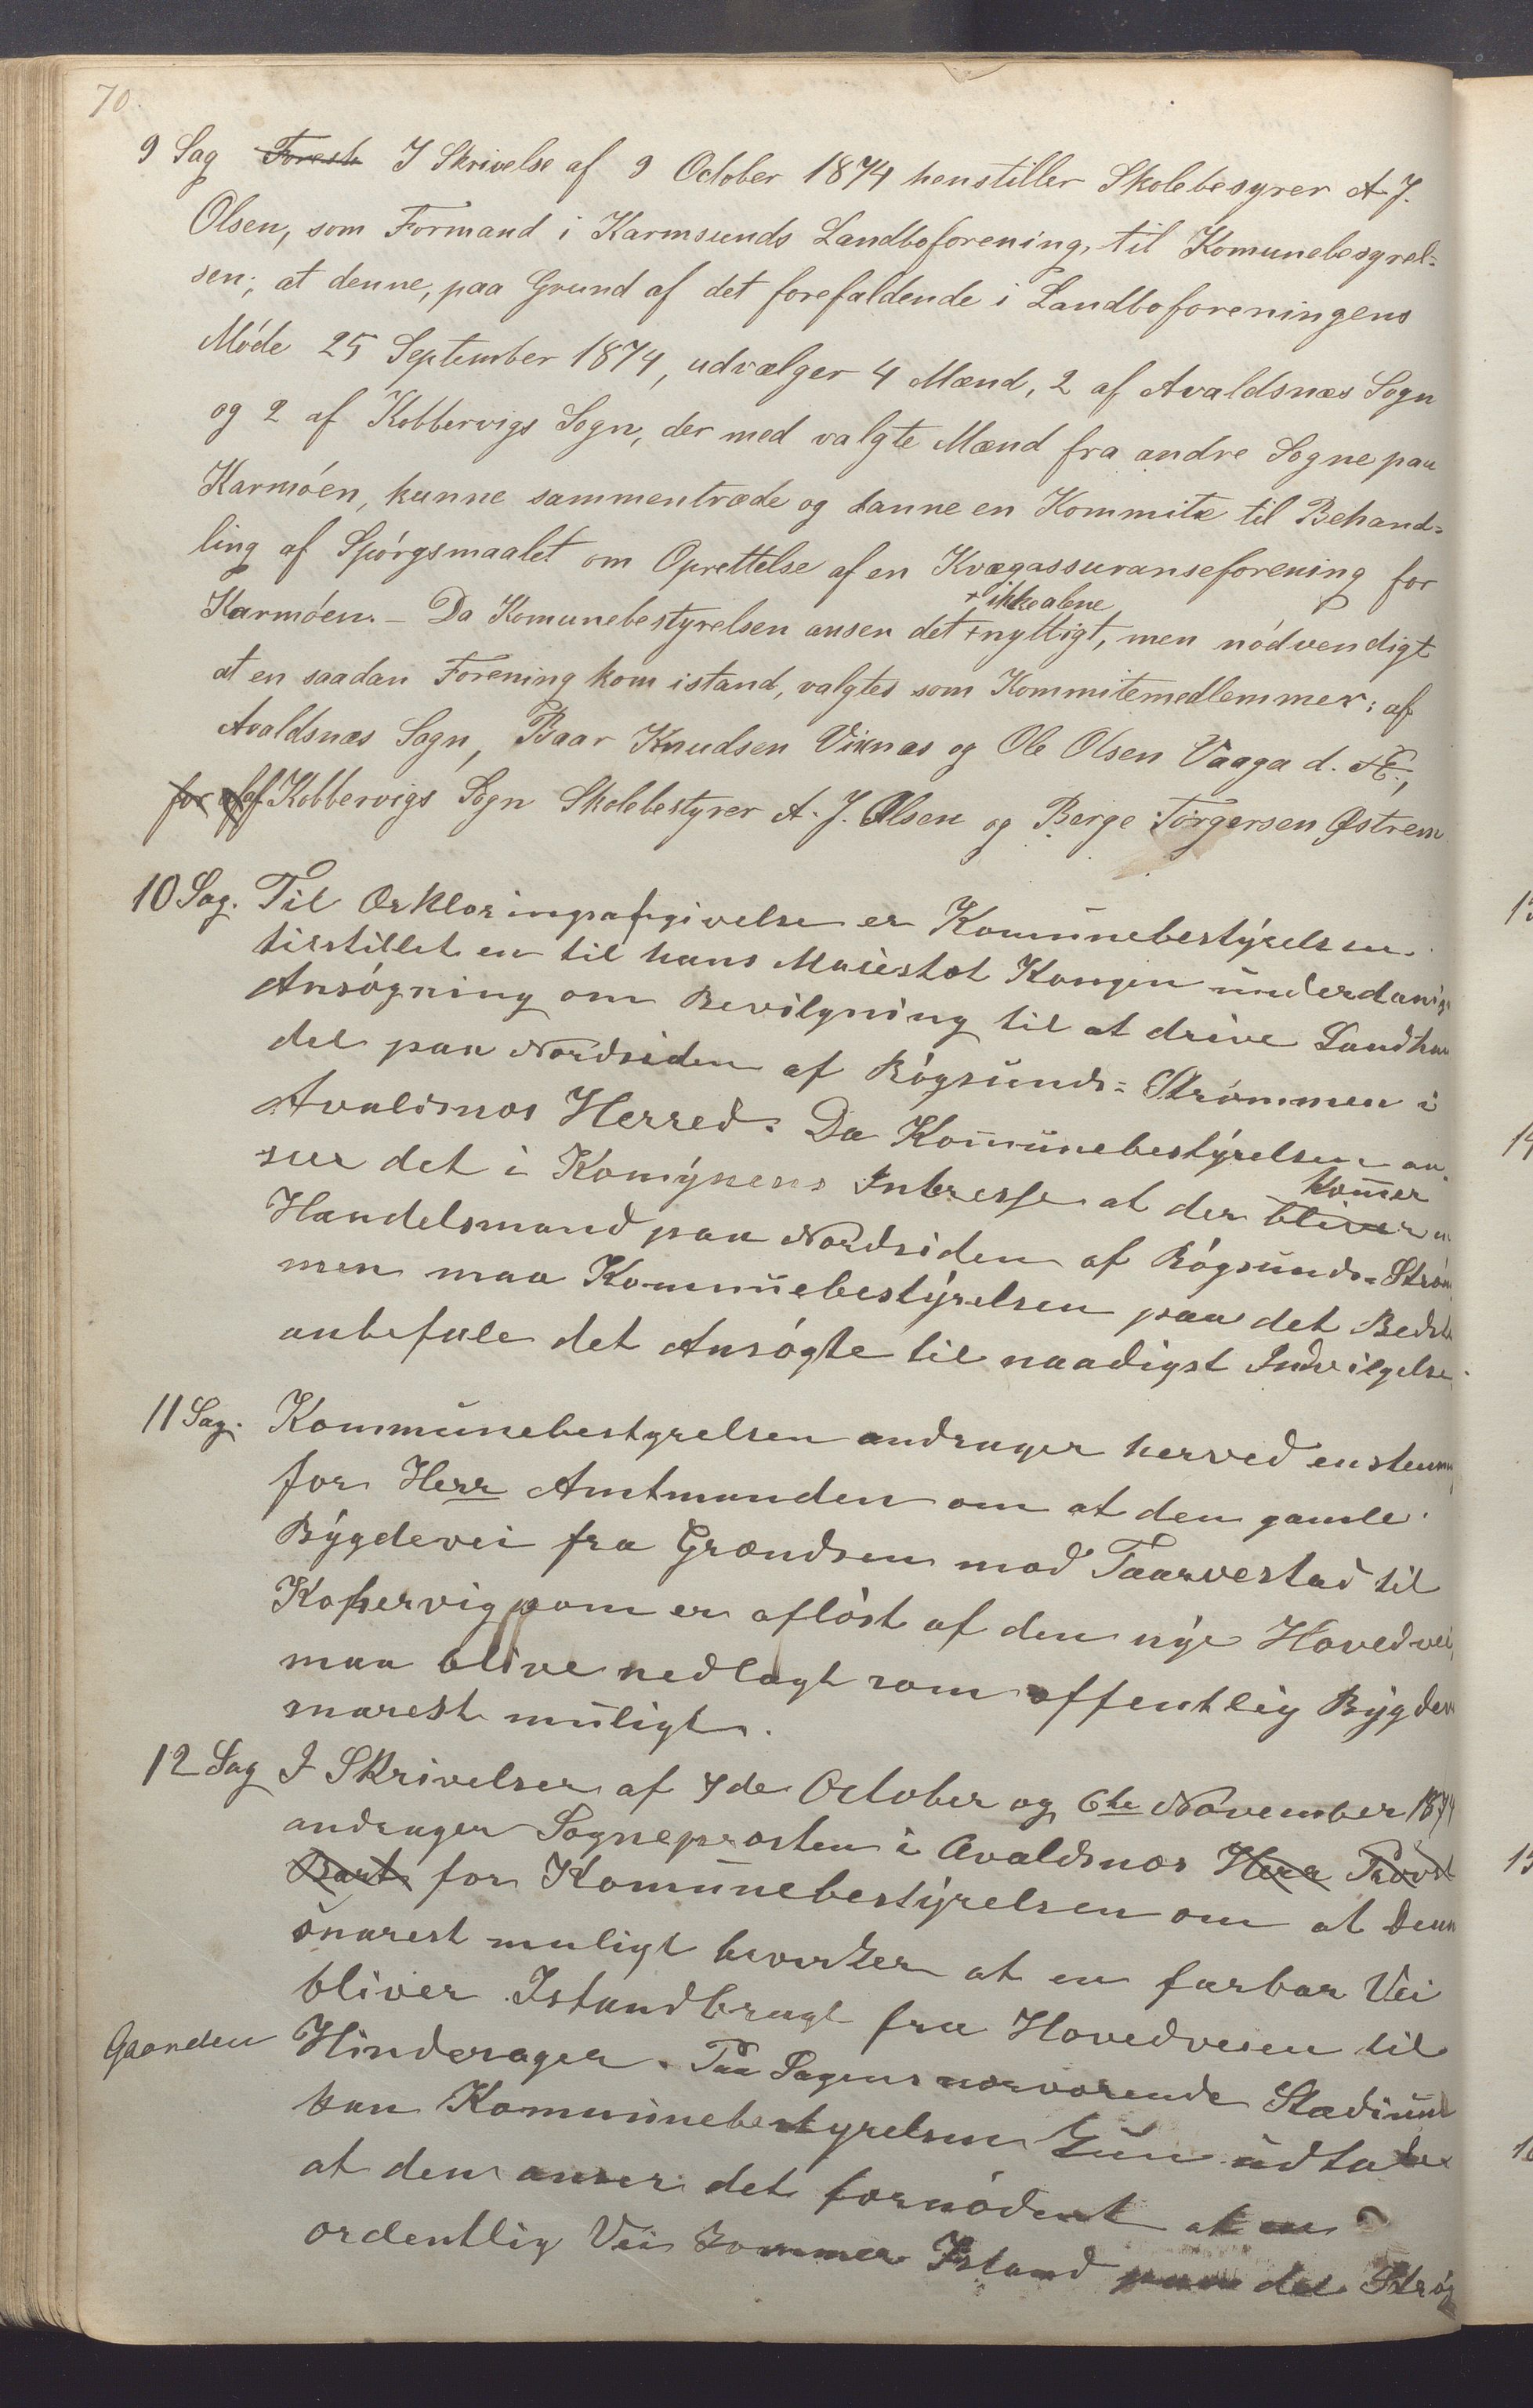 70.
9 Sag Foresh I Skrivelse af 9 October 1874 henstiller Skolebesyrer A. J.
Olsen, som Formand i Karmsunds Landboforening, til Komunebesyrel-
sen; at denne, paa Grund af det forefaldende i Landboforeningens
Møde 25 September 1874, udvælger 4 Mænd, 2 af Avaldsnæs Sogn
og 2 af Kobbervigs Sogn, der med valgte Mænd fra andre Sogne paa
Karmøen, kunne sammentræde og danne en Kommite til Behand-
ling af Spørgsmaalet om Oprettelse af en Kvægassuranseforening for
+ ikke alene
Karmøen. – Da Komunebestyrelsen anser det + nyttigt, men nødvendigt
at en saadan Forening kom istand, valgtes som Kommitemedlemmer; af
Avaldsnæs Sogn, Baar Knudsen Viknæs og Ole Olsen Vaaga d. Æ.,
for af af Kobbervigs Sogn Skolebestyrer A. J. Olsen og Berge Torgersen Østrem
10 Sag. Til Erklæringsafgivelse er Kommunebestyrelsen
tilstillet en til hans Maiestæt Kongen underdanig
Ansøgning om Bevilgning til at drive Landhan
del paa Nordsiden af Røgsunds-Strømmen i
Avaldsnæs Herred. Da Kommunebestyrelsen an
kommer
ser det i Komynens Interesse at der bliver en
Handelsmand paa Nordsiden af Røgsunds-Strøm
men maa Kommunebestyrelsen paa det Bedste
anbefale det Ansøgte til naadigst Indvilgelse.
11 Sag. Kommunebestyrelsen andrager herved enstemmig
for Herr Amtmanden om at den gamle
Bygdevei fra Grændsen mod Taarvestad til
Kopervig som er afløst af den nye Hovedvei,
maa blive nedlagt som offentlig Bygdev
snarest muligt.
12 Sag I Skrivelser af 7de October og 6te November 1874
andrager Sognepræsten i Avaldsnæs Herr Provst
for Komunebestyrelsen om at Denne
snarest muligt bevirker at en farbar Vei
bliver Istandbragt fra Hovedveien til
Gaarden Hinderager. Paa Sagens nærværende Stadium
kan Kommunebestyrelsen kun udtale
at den anser det fornødent at en
ordentlig Vei kommer Istand paa det Strøg